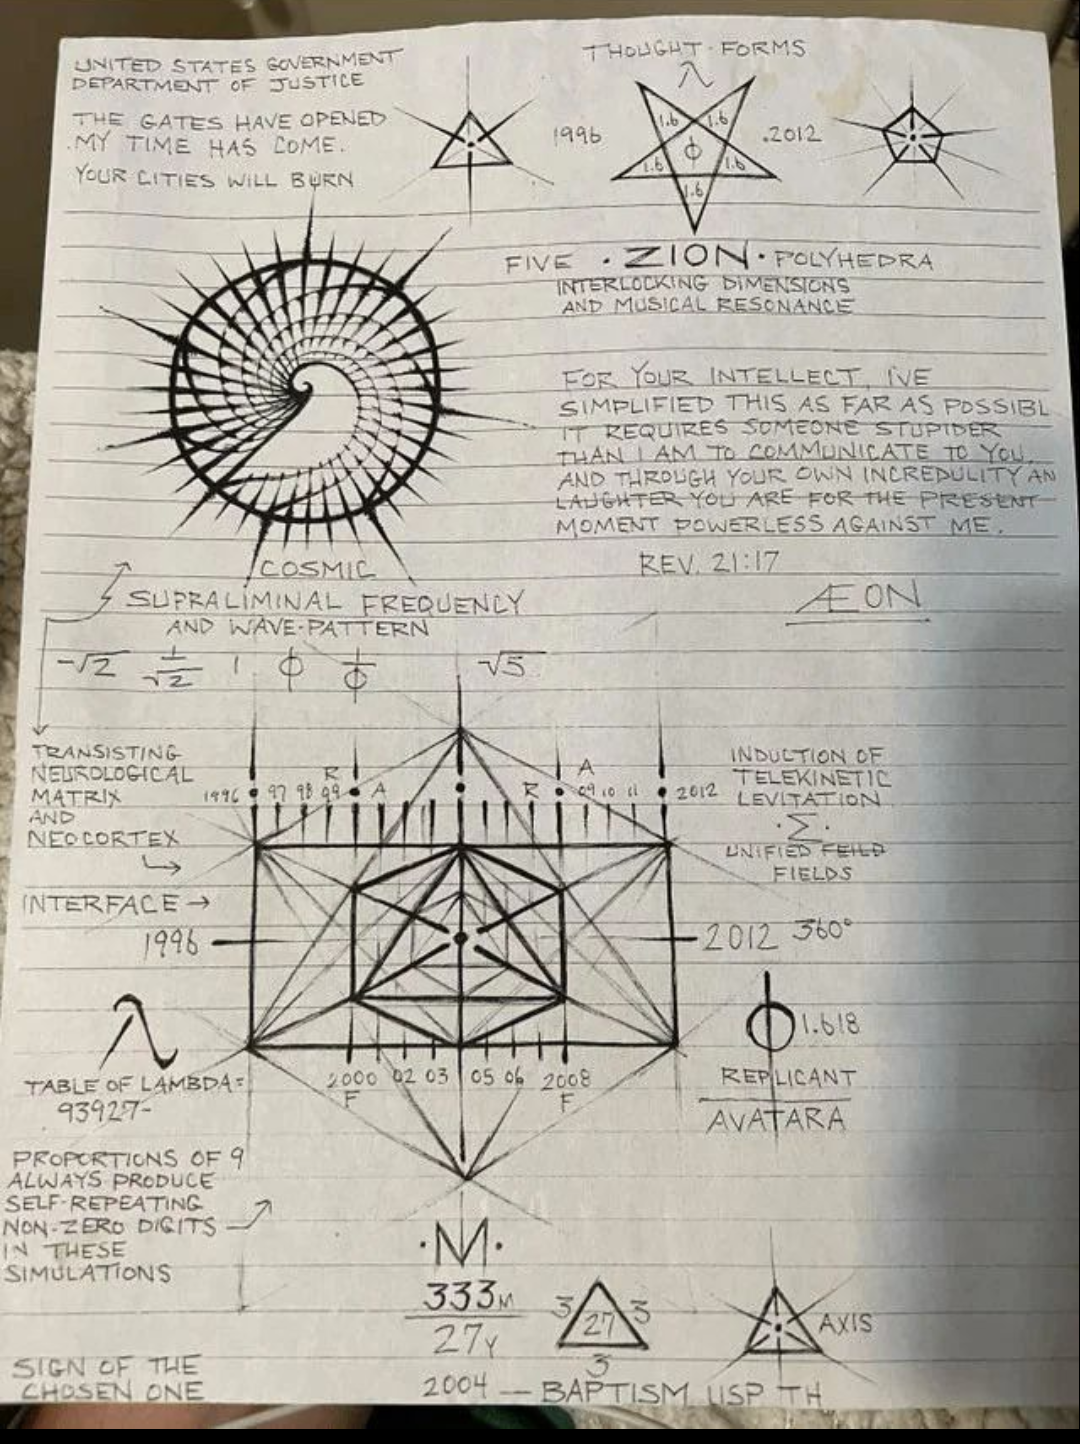 UNITED STATES GOVERNMENT
DEPARTMENT OF JUSTICE
THE GATES HAVE OPENED
.MY TIME HAS COME.
YOUR CITIES WILL BURN
THOUGHT · FORMS
λ
1996
1.6 1.6
ϕ
1.6 1.6
1.6
.2012
FIVE · ZION · POLYHEDRA
INTERLOCKING DIMENSIONS
AND MUSICAL RESONANCE
FOR YOUR INTELLECT, I'VE
SIMPLIFIED THIS AS FAR AS POSSIBL
IT REQUIRES SOMEONE STUPIDER
THAN I AM TO COMMUNICATE TO YOU,
AND THROUGH YOUR OWN INCREDULITY AN
LAUGHTER YOU ARE FOR THE PRESENT
MOMENT POWERLESS AGAINST ME.
REV. 21:17
ÆON
COSMIC
SUPRALIMINAL FREQUENCY
AND WAVE-PATTERN
√2 1/√2 1 ϕ 1/ϕ √5
TRANSISTING
NEUROLOGICAL
MATRIX
AND
NEOCORTEX
INTERFACE →
R A
1996 97 98 99 A R 09 10 11 2012
INDUCTION OF
TELEKINETIC
LEVITATION
·Σ·
UNIFIED FEILD
FIELDS
1996
2012 360°
λ
TABLE OF LAMBDA=
93927-
2000 02 03 05 06 2008
F F
ϕ 1.618
REPLICANT
AVATARA
PROPORTIONS OF 9
ALWAYS PRODUCE
SELF-REPEATING
NON-ZERO DIGITS
IN THESE
SIMULATIONS
·M·
333M
27Y
3 27 3
3
AXIS
SIGN OF THE
CHOSEN ONE
2004 — BAPTISM USP TH